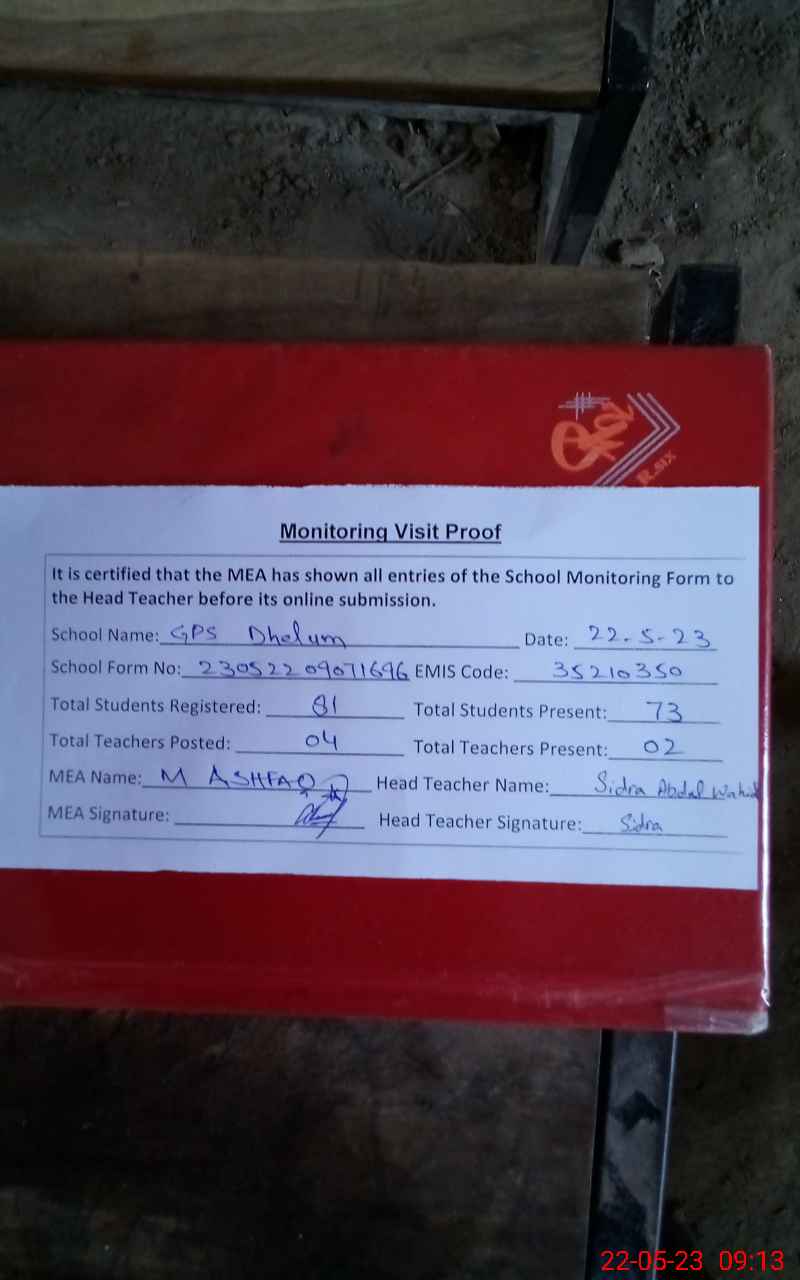 R.SIX
Monitoring Visit Proof
It is certified that the MEA has shown all entries of the School Monitoring Form to
the Head Teacher before its online submission.
School Name: GPS Dhelum Date: 22-5-23
School Form No: 23052209071696 EMIS Code: 35210350
Total Students Registered: 81 Total Students Present: 73
Total Teachers Posted: 04 Total Teachers Present: 02
MEA Name: M ASHFAQ Head Teacher Name: Sidra Abdal Wahid
MEA Signature: Head Teacher Signature: Sidra
22-05-23 09:13